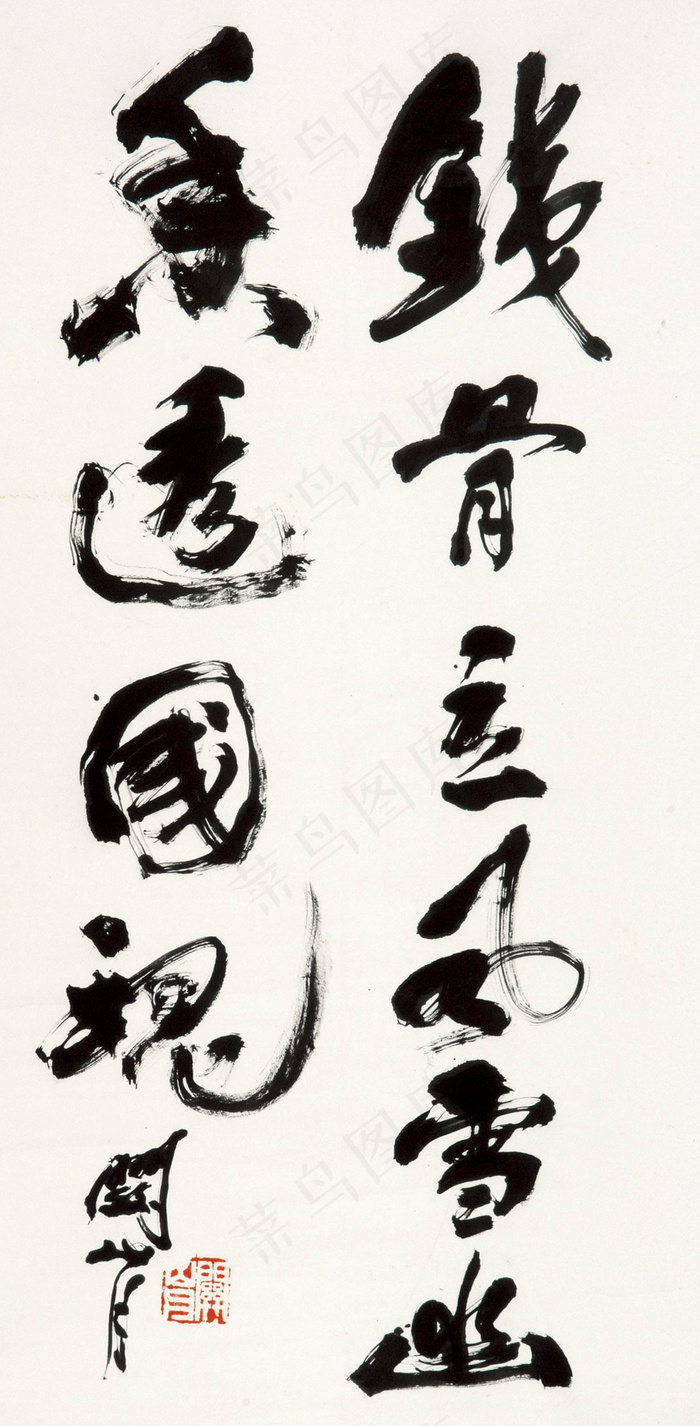 鐵骨立風雪幽
香透國魂
關山月
關山月
菜鸟图库
菜鸟图库
菜鸟图库
菜鸟图库